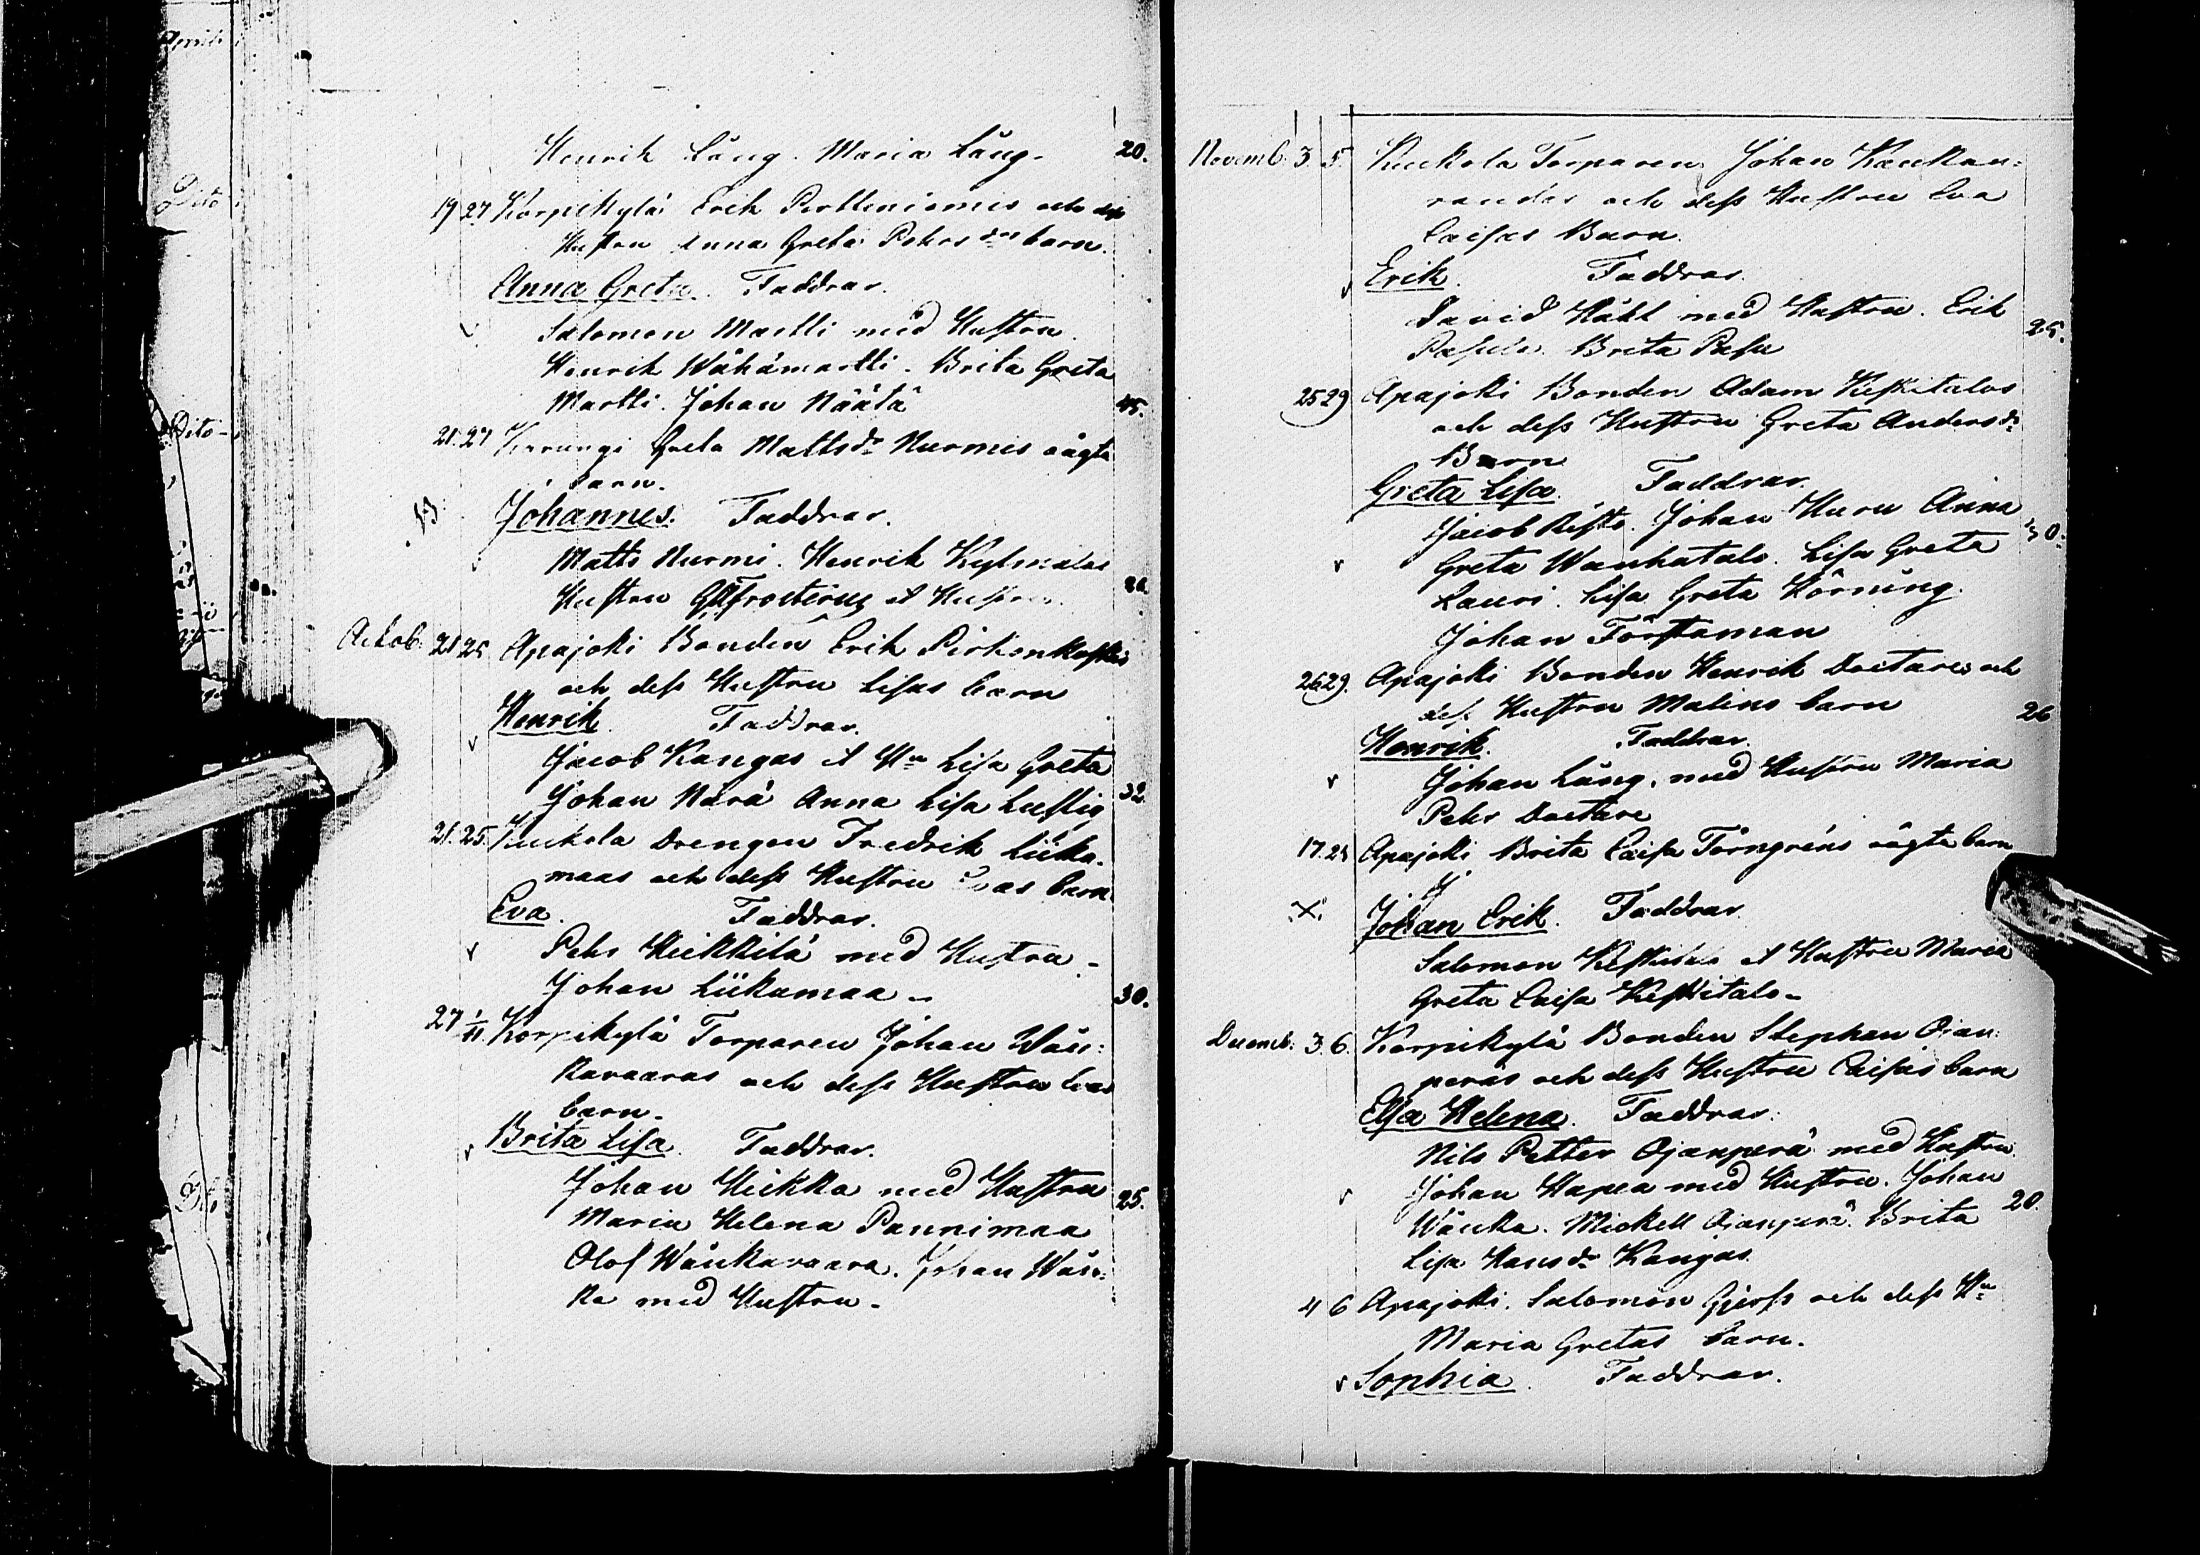 Henrik Lång. Maria Lång. 20.
19 27 Korpikylä Erik Perttuniemis och dess
Hustru Anna Greta Pehrs dr barn.
Anna Greta. Faddrar.
Salomon Martti med Hustru.
Henrik Wähämartti. Brita Greta
Martti. Johan Näätä 45.
21. 27 Karungi Greta Matts dr Nurmis oägta
barn.
Johannes. Faddrar.
Matts Nurmi. Henrik Kylmälas
Hustru
Octob. 21 25 Apajoki Bonden Erik Pirkonkoskis
och dess Hustru Lisas barn
Henrik. Faddrar.
Jacob Kangas et Hu Lisa Greta
Johan Närä Anna Lisa Lustig 32
21. 25. Kuckola Drengen Fredrik Liika-
maas och dess Hustru Evas barn
Eva. Faddrar.
Pehr Heikkilä med Hustru -
Johan Liikamaa - 30.
27 1/11. Korpikylä Torparen Johan Wäu:
karaaras och dess Hustru Evas
barn.
Brita Lisa. Faddrar.
Johan Hickka med Hustru
Maria Helena Pannimaa 25.
Olof Wäukaraara. Johan Wäu:
ka med Hustru.
Novemb. 3. 5. Kuckola Torparen Johan Kaukan:
randas och dess Hustru Eva
Caisas Barn.
Erik. Faddrar.
David Häkt med Hustru. Erik
Pasula. Brita Pasu 25.
25 29 Apajoki Bonden Adam Keskitalos
och dess Hustru Greta Anders dr
Barn
Greta Lisa. Faddrar.
Jacob Risto. Johan Huru Anna
Greta Wanhatalo. Lisa Greta 30.
Lauri. Lisa Greta Körning.
Johan Förstaman
26 29. Apajoki Bonden Henrik Doctares och
dess Hustru Malins barn 26
Henrik. Faddrar.
Johan Lång. med Hustru Maria
Pehr Doctare
17. 25 Apajoki Brita Caisa Törngréns oägta barn
J
X. Johan Erik. Faddrar.
Salomon Keskitalo et Hustru Maria
Greta Caisa Keskitalo -
Decemb. 3. 6. Korpikylä Bonden Stephan Ojan:
peräs och dess Hustru Caisas barn
Elsa Helena. Faddrar.
Nils Petter Ojanperä med Hustru.
Johan Hapea med Hustru. Johan
Wäuka. Mickell Ojanperä. Brita 20.
Lisa Hans dr Kangas.
4 6 Apajoki. Salomon Gjerss och dess Hu
Maria Gretas barn.
Sophia. Faddrar.